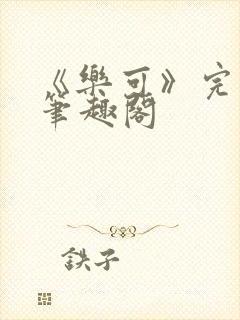 《樂可》完
筆趣閣
鉄子